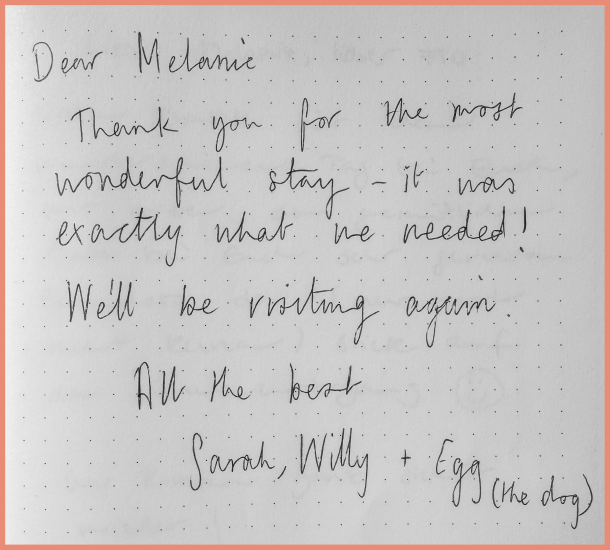 Dear Melanie
Thank you for the most
wonderful stay – it was
exactly what we needed!
We'll be visiting again.
All the best
Sarah, Willy + Egg
(the dog)